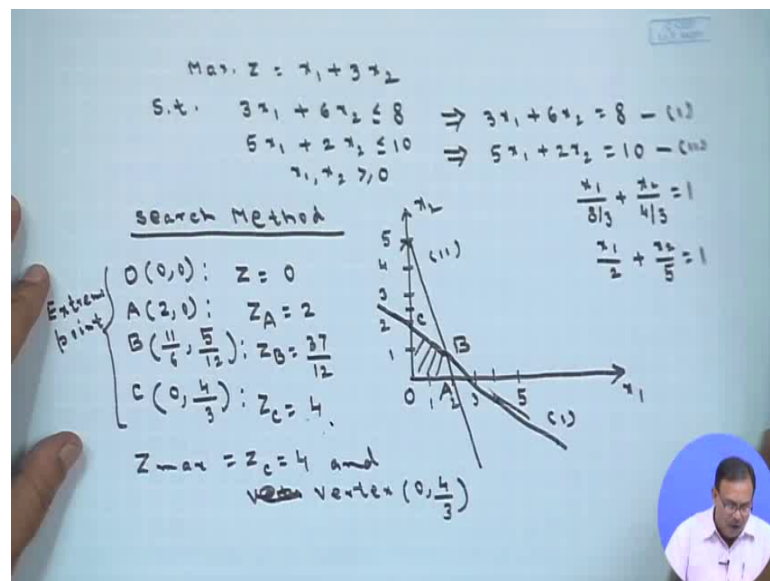 Max. Z = x₁ + 3x₂
S.t. 3x₁ + 6x₂ ≤ 8 ⇒ 3x₁ + 6x₂ = 8 – (i)
5x₁ + 2x₂ ≤ 10 ⇒ 5x₁ + 2x₂ = 10 – (ii)
x₁, x₂ ≥ 0
x₁/8/3 + x₂/4/3 = 1
x₁/2 + x₂/5 = 1
Search Method
Extreme point
O(0,0): Z = 0
A(2,0): Z_A = 2
B(11/6, 5/12): Z_B = 37/12
C(0, 4/3): Z_C = 4.
Z max = Z_C = 4 and
vertex (0, 4/3)
x₂
5 (ii)
4
3
2 C
1 B
0 1 A 2 3 5 x₁
(i)